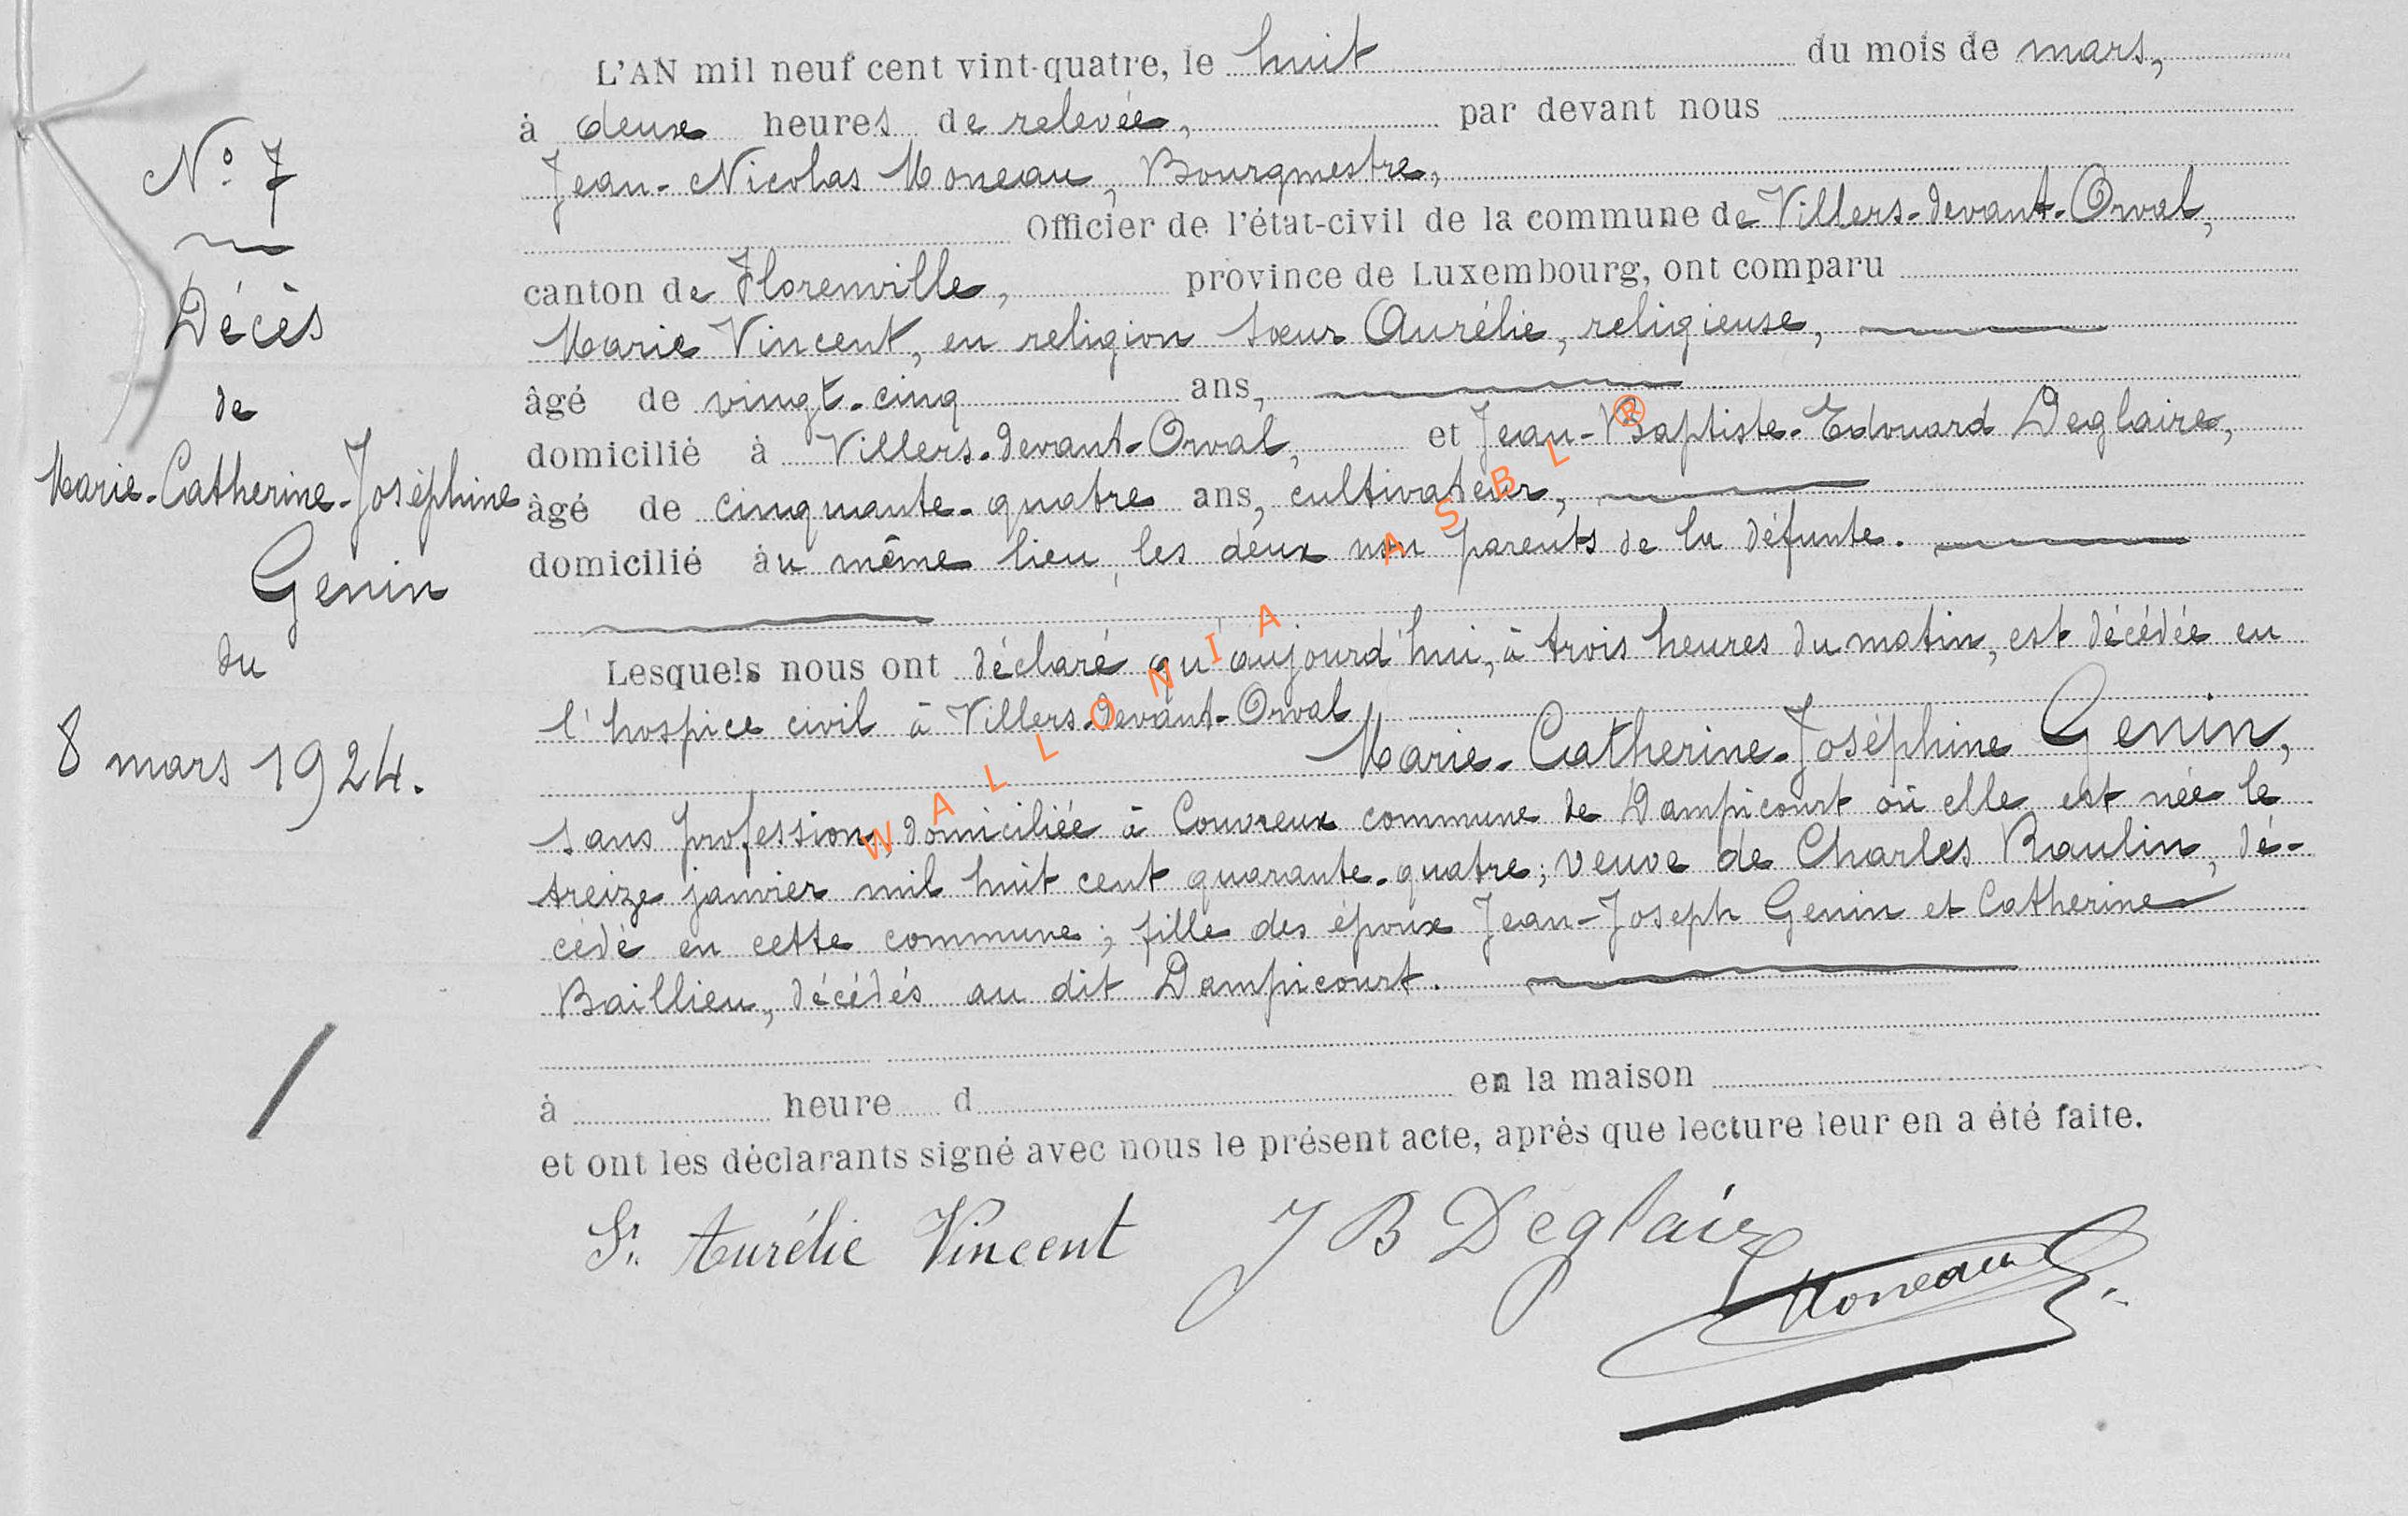 N° 7
Décès
de
Marie-Catherine-Joséphine
Genin
du
8 mars 1924.
L'AN mil neuf cent vint-quatre, le huit du mois de mars,
à deux heures de relevée, par devant nous
Jean-Nicolas Moneau, Bourgmestre,
Officier de l'état-civil de la commune de Villers-devant-Orval,
canton de Florenville, province de Luxembourg, ont comparu
Marie Vincent, en religion sœur Aurélie, religieuse,
âgé de vingt-cinq ans,
domicilié à Villers-devant-Orval, et Jean-Baptiste-Edouard Deglaire,
âgé de cinquante-quatre ans, cultivateur,
domicilié au même lieu, les deux non parents de la défunte.
Lesquels nous ont déclaré qu'aujourd'hui, à trois heures du matin, est décédée en
l'hospice civil à Villers-devant-Orval
Marie-Catherine-Joséphine Genin,
sans profession, domiciliée à Couvreux commune de Dampicourt où elle est née le
treize janvier mil huit cent quarante-quatre; veuve de Charles Raulin, dé-
cédé en cette commune; fille des époux Jean-Joseph Genin et Catherine
Baillieu, décédés au dit Dampicourt.
à heure d en la maison
et ont les déclarants signé avec nous le présent acte, après que lecture leur en a été faite.
Sr. Aurélie Vincent J B Deglaire
Moneau
WALLONIA ASBL ®